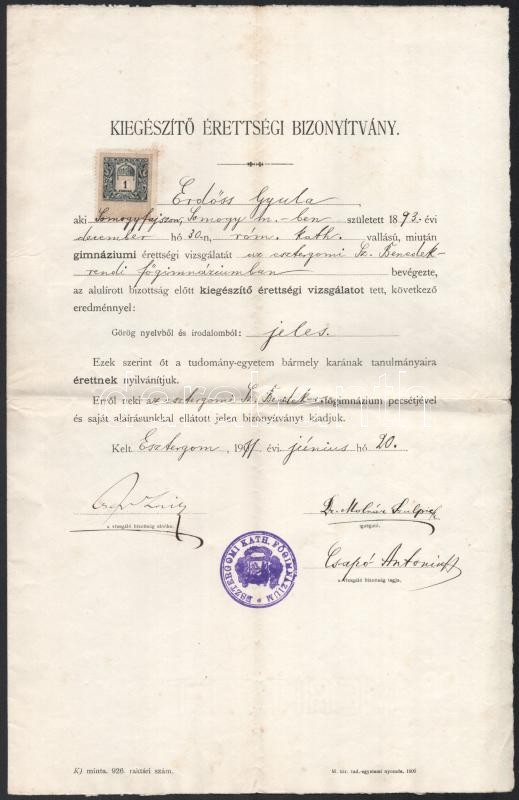 KIEGÉSZÍTŐ ÉRETTSÉGI BIZONYÍTVÁNY.
1
Erdőss Gyula
aki Somogyfajszon, Somogy m.-ben született 1893. évi
december hó 30-n, róm. kath. vallású, miután
gimnáziumi érettségi vizsgálatát az esztergomi Sz. Benedek-
rendi főgimnáziumban bevégezte,
az alulírott bizottság előtt kiegészítő érettségi vizsgálatot tett, következő
eredménnyel:
Görög nyelvből és irodalomból: jeles.
Ezek szerint őt a tudomány-egyetem bármely karának tanulmányaira
érettnek nyilvánítjuk.
Erről neki az esztergomi Sz. főgimnázium pecsétjével
és saját aláírásunkkal ellátott jelen bizonyítványt kiadjuk.
Kelt Esztergom, 1911 évi június hó 20.
a vizsgáló bizottság elnöke.
Dr. Molnár Szulpicz
igazgató.
ESZTERGOMI KATH. FŐGIMNÁZIUM
Csapó Antonin
a vizsgáló bizottság tagja.
K) minta. 926. raktári szám.
M. kir. tud.-egyetemi nyomda.